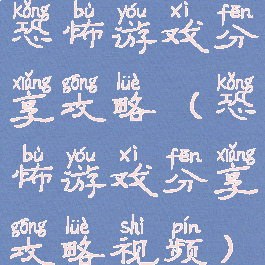 kǒng bù yóu xì fēn
恐怖游戏分
xiǎng gōng lüè kǒng
享攻略（恐
bù yóu xì fēn xiǎng
怖游戏分享
gōng lüè shì pín
攻略视频）